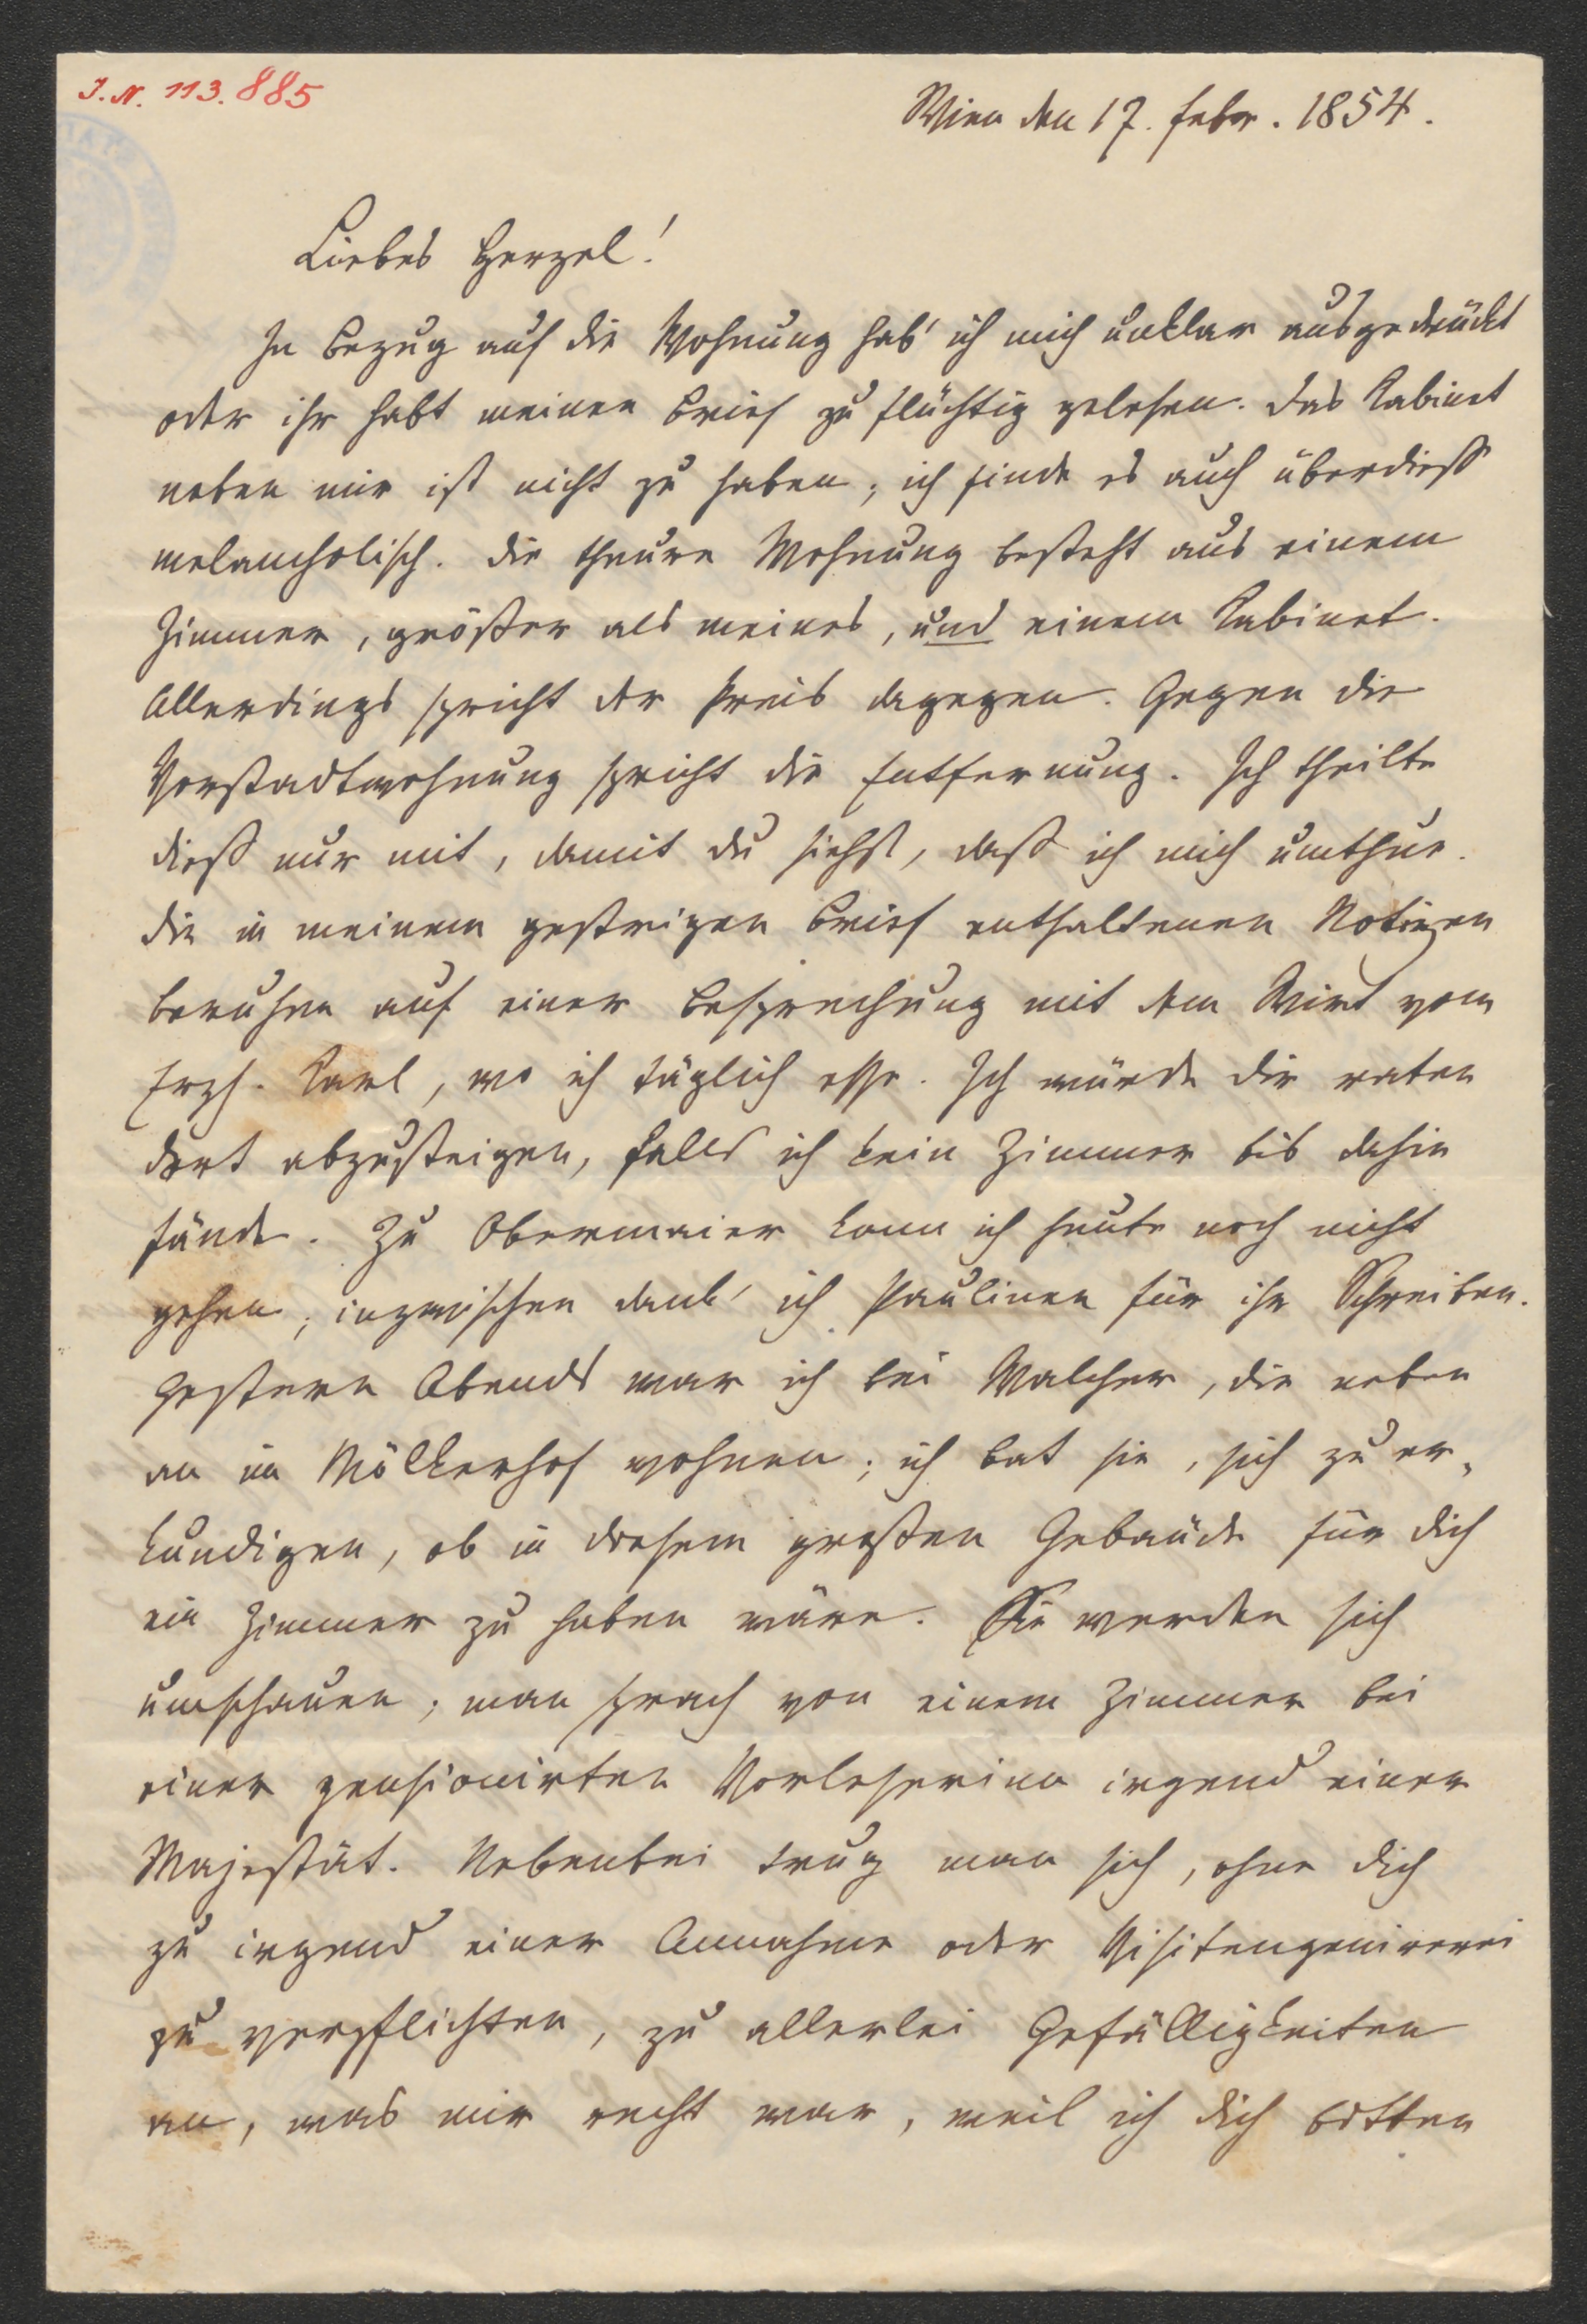 J. N. 113.885
Wien den 17. Febr. 1854.
Liebes Herzel!
In Bezug auf die Wohnung hab' ich mich unklar ausgedrückt
oder ihr habt meinen Brief zu flüchtig gelesen. Das Kabinet
neben mir ist nicht zu haben; ich finde es auch überdieß
melancholisch. Die theure Wohnung besteht aus einem
Zimmer, größer als meines, und einem Kabinet.
Allerdings spricht der Preis dagegen. Gegen die
Vorstadtwohnung spricht die Entfernung. Ich theilte
dieß nur mit, damit du siehst, daß ich mich umthue.
Die in meinem gestrigen Brief enthaltenen Notizen
beruhen auf einer Besprechung mit dem Wirt vom
Erzh. Karl, wo ich täglich esse. Ich würde dir raten
dort abzusteigen, falls ich kein Zimmer bis dahin
fände. Zu Obermaier kann ich heute noch nicht
gehen; inzwischen dank' ich Paulinen für ihr Schreiben.
Gestern Abends war ich bei Walcher, die neben
an im Mölkerhof wohnen; ich bat sie, sich zu er-
kundigen, ob in diesem großen Gebäude für dich
ein Zimmer zu haben wäre. Sie werden sich
umschauen; man sprach von einem Zimmer bei
einer pensionirten Vorleserinn irgend einer
Majestät. Nebenbei trug man sich, ohne dich
zu irgend einer Annahme oder Visitengenirerei
zu verpflichten, zu allerlei Gefälligkeiten
an, was mir recht war, weil ich dich bitten